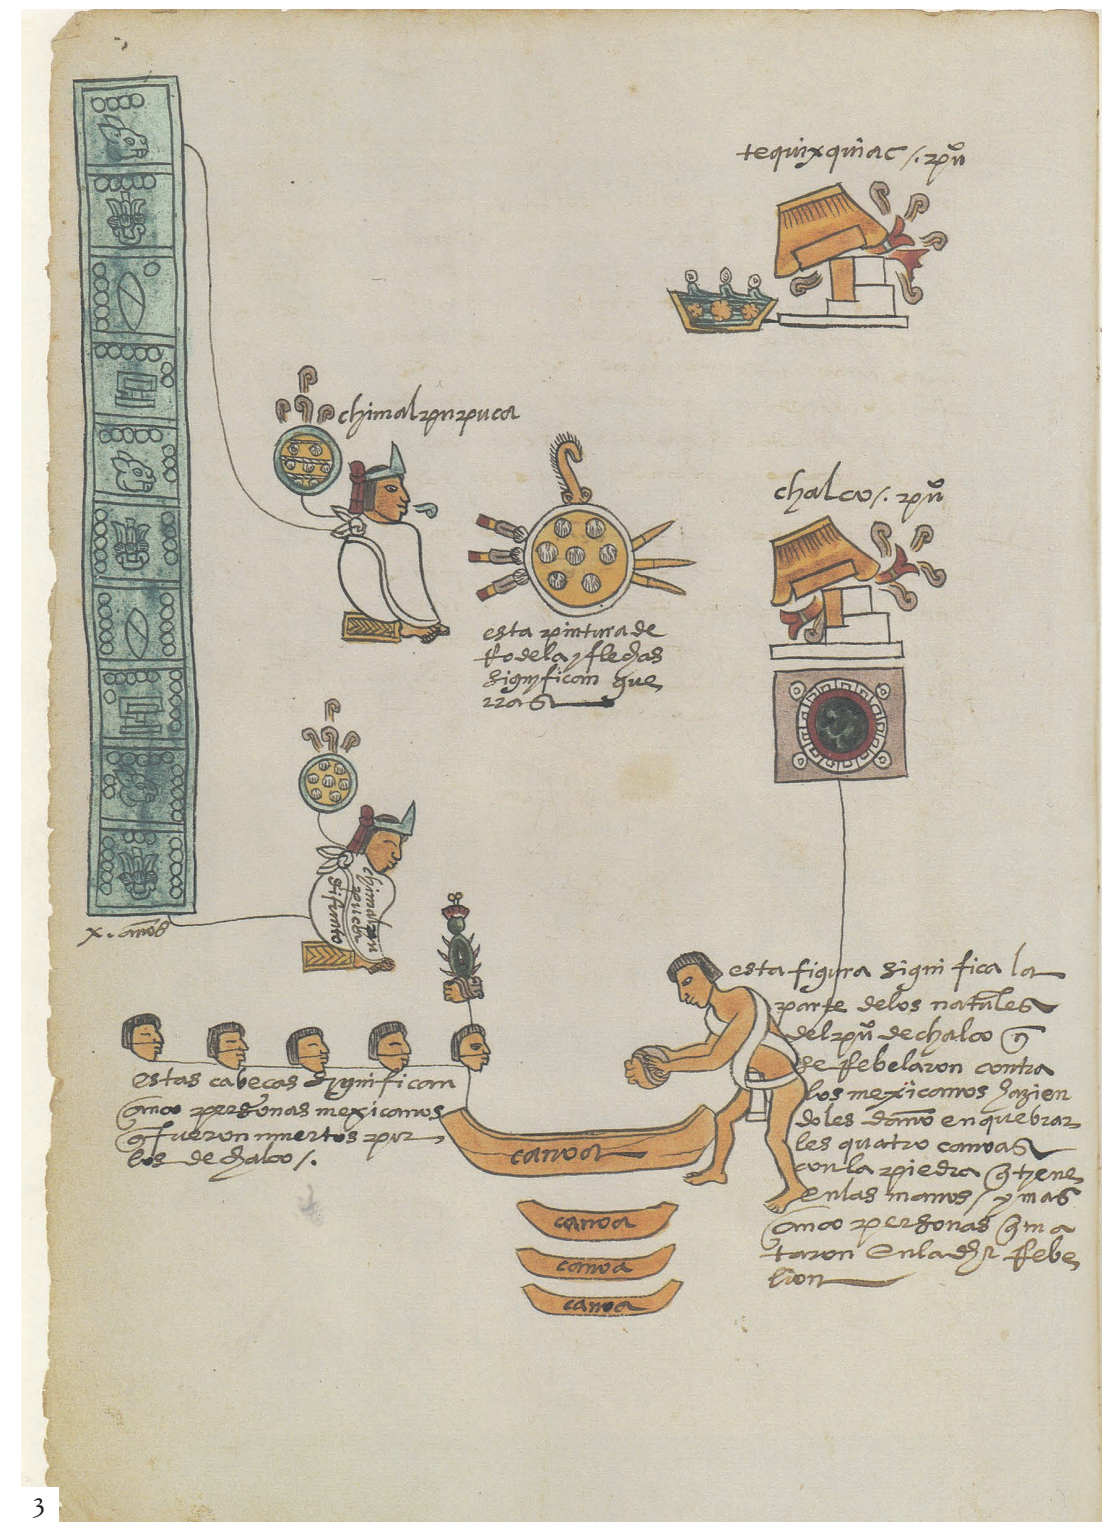 tequixquiac /. pu͞o
chimalpupuca
chalco /. pu͞o
esta pintura de
Rodela y flechas
significan gue
rras
x. años
chimalpu
puca
difunto
esta figura signi fica la
parte delos natu͞les
del pu͞o de chalco q͞
se Rebelaron contra
los mexicanos hazien
doles daño en quebrar
les quatro canoas
con la piedra q͞ tiene
en las manos / y mas
çinco personas q͞ ma
taron en la dha Rebe
lion
estas cabeças significan
çinco personas mexicanos
q͞ fueron muertos por
los de chalco /.
canoa
canoa
canoa
canoa
3